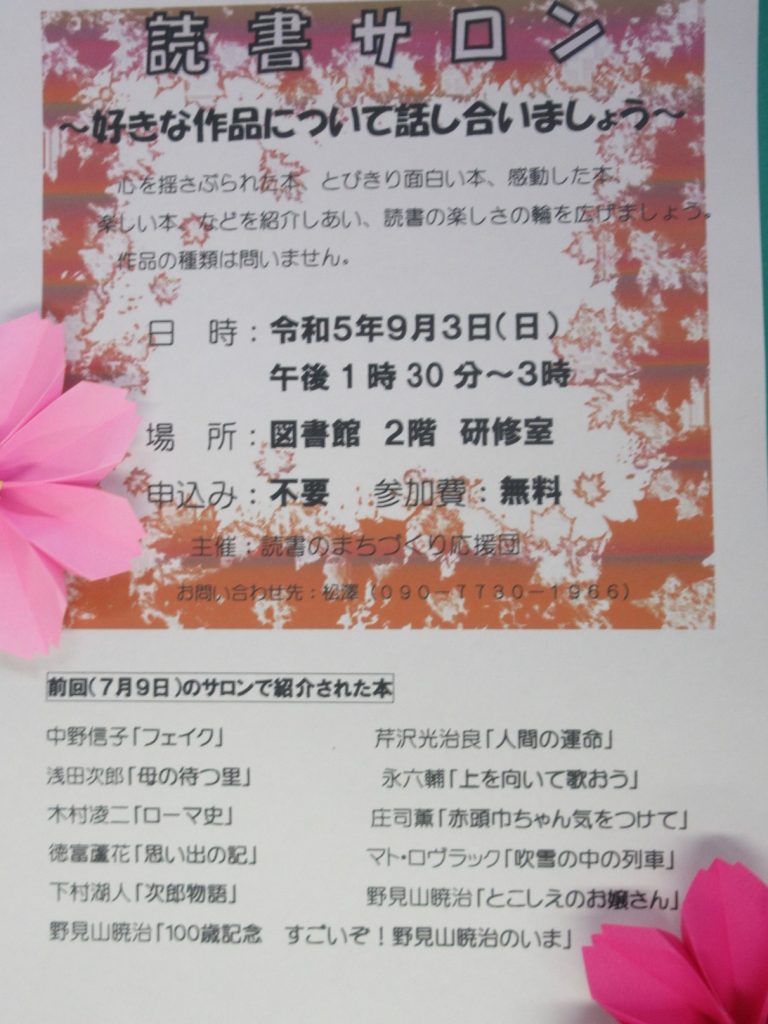 読書サロン
～好きな作品について話し合いましょう～
心を揺さぶられた本、とびきり面白い本、感動した本、
楽しい本、などを紹介しあい、読書の楽しさの輪を広げましょう。
作品の種類は問いません。
日　時：令和5年9月3日(日)
午後1時30分～3時
場　所：図書館　2階　研修室
申込み：不要　参加費：無料
主催：読書のまちづくり応援団
お問い合わせ先：松澤（090－7730－1966）
前回(7月9日)のサロンで紹介された本
中野信子「フェイク」　芹沢光治良「人間の運命」
浅田次郎「母の待つ里」　永六輔「上を向いて歌おう」
木村凌二「ローマ史」　庄司薫「赤頭巾ちゃん気をつけて」
徳富蘆花「思い出の記」　マト・ロヴラック「吹雪の中の列車」
下村湖人「次郎物語」　野見山暁治「とこしえのお嬢さん」
野見山暁治「100歳記念　すごいぞ！野見山暁治のいま」